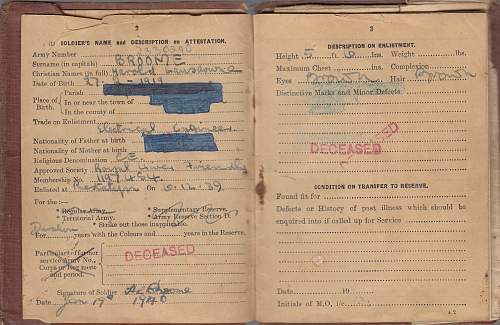 2
(I) SOLDIER'S NAME and DESCRIPTION on ATTESTATION.
Army Number 2330390
Surname (in capitals) BROOME
Christian Names (in full) Harold Lansdowne
Date of Birth 27- -1919
Place of Birth.
Parish
In or near the town of
In the county of
Trade on Enlistment Electrical Engineer.
Nationality of Father at birth
Nationality of Mother at birth
Religious Denomination C.E.
Approved Society Royal Friendly
Membership No.
Enlisted at On 6.12.39
For the :—
* Regular Army. * Supplementary Reserve.
* Territorial Army. * Army Reserve Section D.
* Strike out those inapplicable.
For Duration years with the Colours and years in the Reserve.
Particulars of former service Army No., Corps or Regiment and period.
DECEASED
Signature of Soldier
Date Jan 19th 1940
3
DESCRIPTION ON ENLISTMENT.
Height 5 ft. 6 ins. Weight lbs.
Maximum Chest ins. Complexion
Eyes Brown Hair Brown
Distinctive Marks and Minor Defects
DECEASED
CONDITION ON TRANSFER TO RESERVE.
Found fit for
Defects or History of past illness which should be
enquired into if called up for Service
Date 19
Initials of M.O. i/c